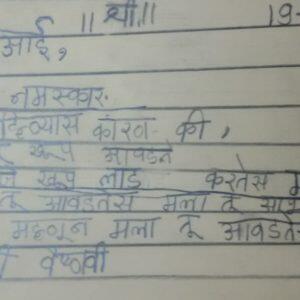 ॥ श्री ॥ 19-
आई,
नमस्कार.
कारण की,
खूप आवडते
खूप लाड करतेस
तू आवडतेस मला तू
म्हणून मला तू आवडतेस
वैष्णवी